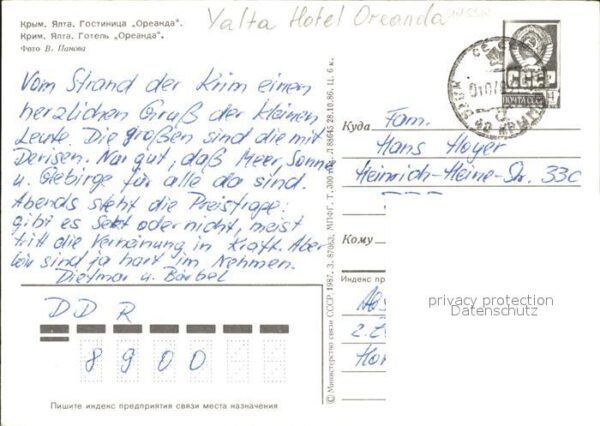 Крым. Ялта. Гостиница „Ореанда".
Крим. Ялта. Готель „Ореанда".
Фото В. Панова
Yalta Hotel Oreanda
Vom Strand der Krim einen
herzlichen Gruß der kleinen
Leute. Die großen sind die mit
Devisen. Nur gut, daß Meer, Sonne
u. Gebirge für alle da sind.
Abends steht die Preisfrage:
gibt es Sekt oder nicht, meist
tritt die Verneinung in Kraft. Aber
wir sind ja hart im Nehmen.
Dietmar u. Bärbel
DDR
8900
Пишите индекс предприятия связи места назначения
© Министерство связи СССР. 1987. З. 87063. МПФГ. Т. 300 Л 88645 28.10.86. Ц. 6 к.
СССР
ПОЧТА СССР
Куда
Fam.
Hans Hoyer
Heinrich-Heine-Str. 33c
Кому
Индекс пр
privacy protection
Datenschutz
2.